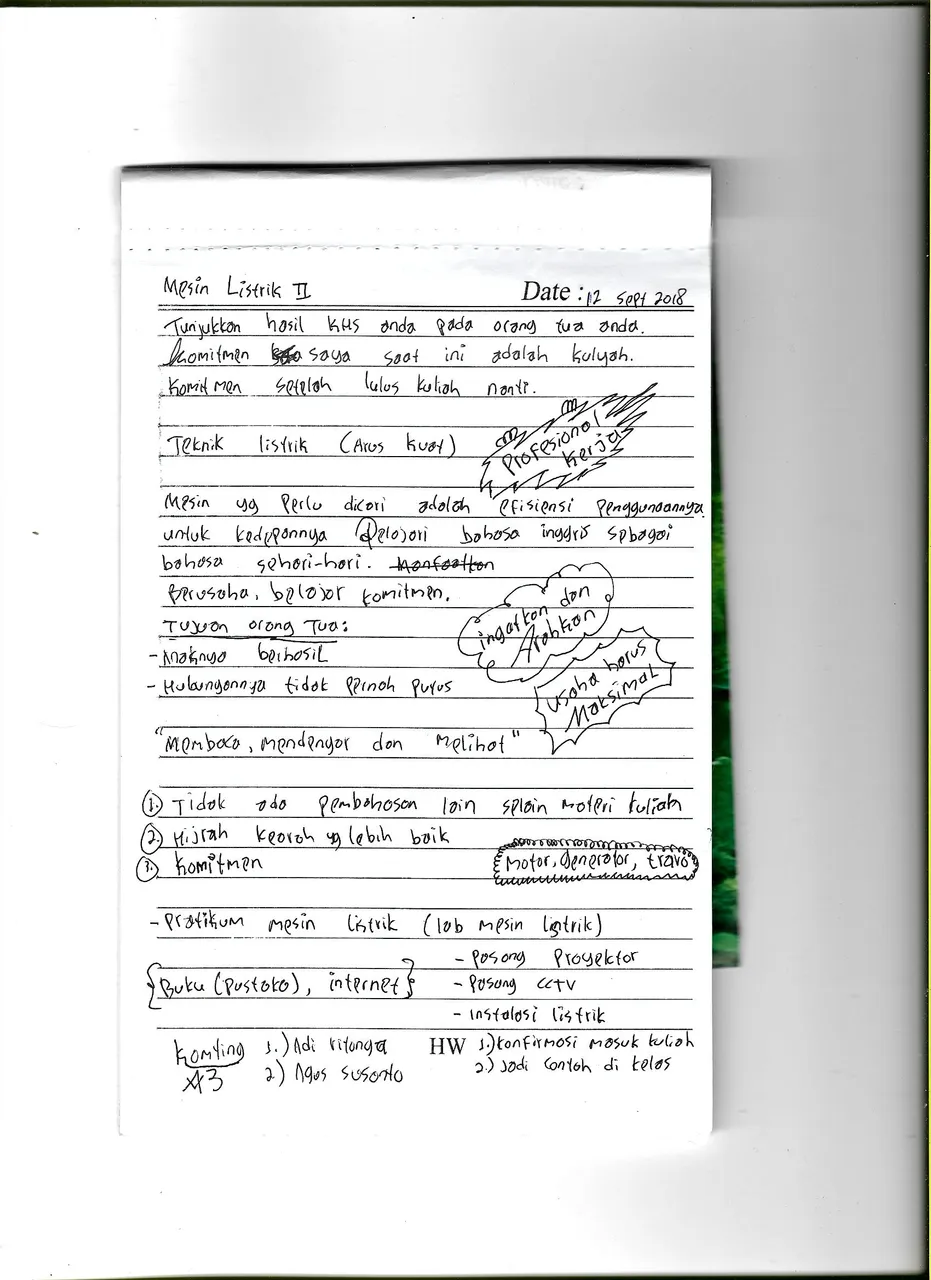 Mesin Listrik II
Date : 12 Sept 2018
Tunjukkan hasil KHS anda pada orang tua anda.
Komitmen saya saat ini adalah kulyah.
Komitmen setelah lulus kuliah nanti.
Teknik listrik (Arus kuat)
Profesional
kerja
Mesin yg perlu dicari adalah efisiensi penggunaannya
untuk kedepannya Pelajari bahasa inggris sebagai
bahasa sehari-hari. Manfaatkan
Berusaha, belajar komitmen.
ingatkan dan
Arahkan
Tujuan orang Tua:
- Anaknya berhasil
- Hubungannya tidak pernah putus
Usaha harus
Maksimal
"Membaca, mendengar dan melihat"
1. Tidak ada pembahasan lain selain materi kuliah
2. Hijrah kearah yg lebih baik
3. Komitmen
Motor, generator, travo
- Pratikum mesin listrik (lab mesin listrik)
- Pasang Proyektor
{Buku (Pustaka), internet}
- Pasang CCTV
- instalasi listrik
Komting
A3
1.) Adi ritonga
2) Agus susanto
HW 1.) konfirmasi masuk kuliah
2.) Jadi contoh di kelas